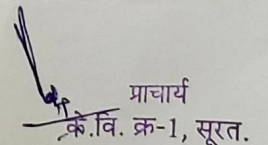 प्राचार्य
के.वि. क्र-1, सूरत.